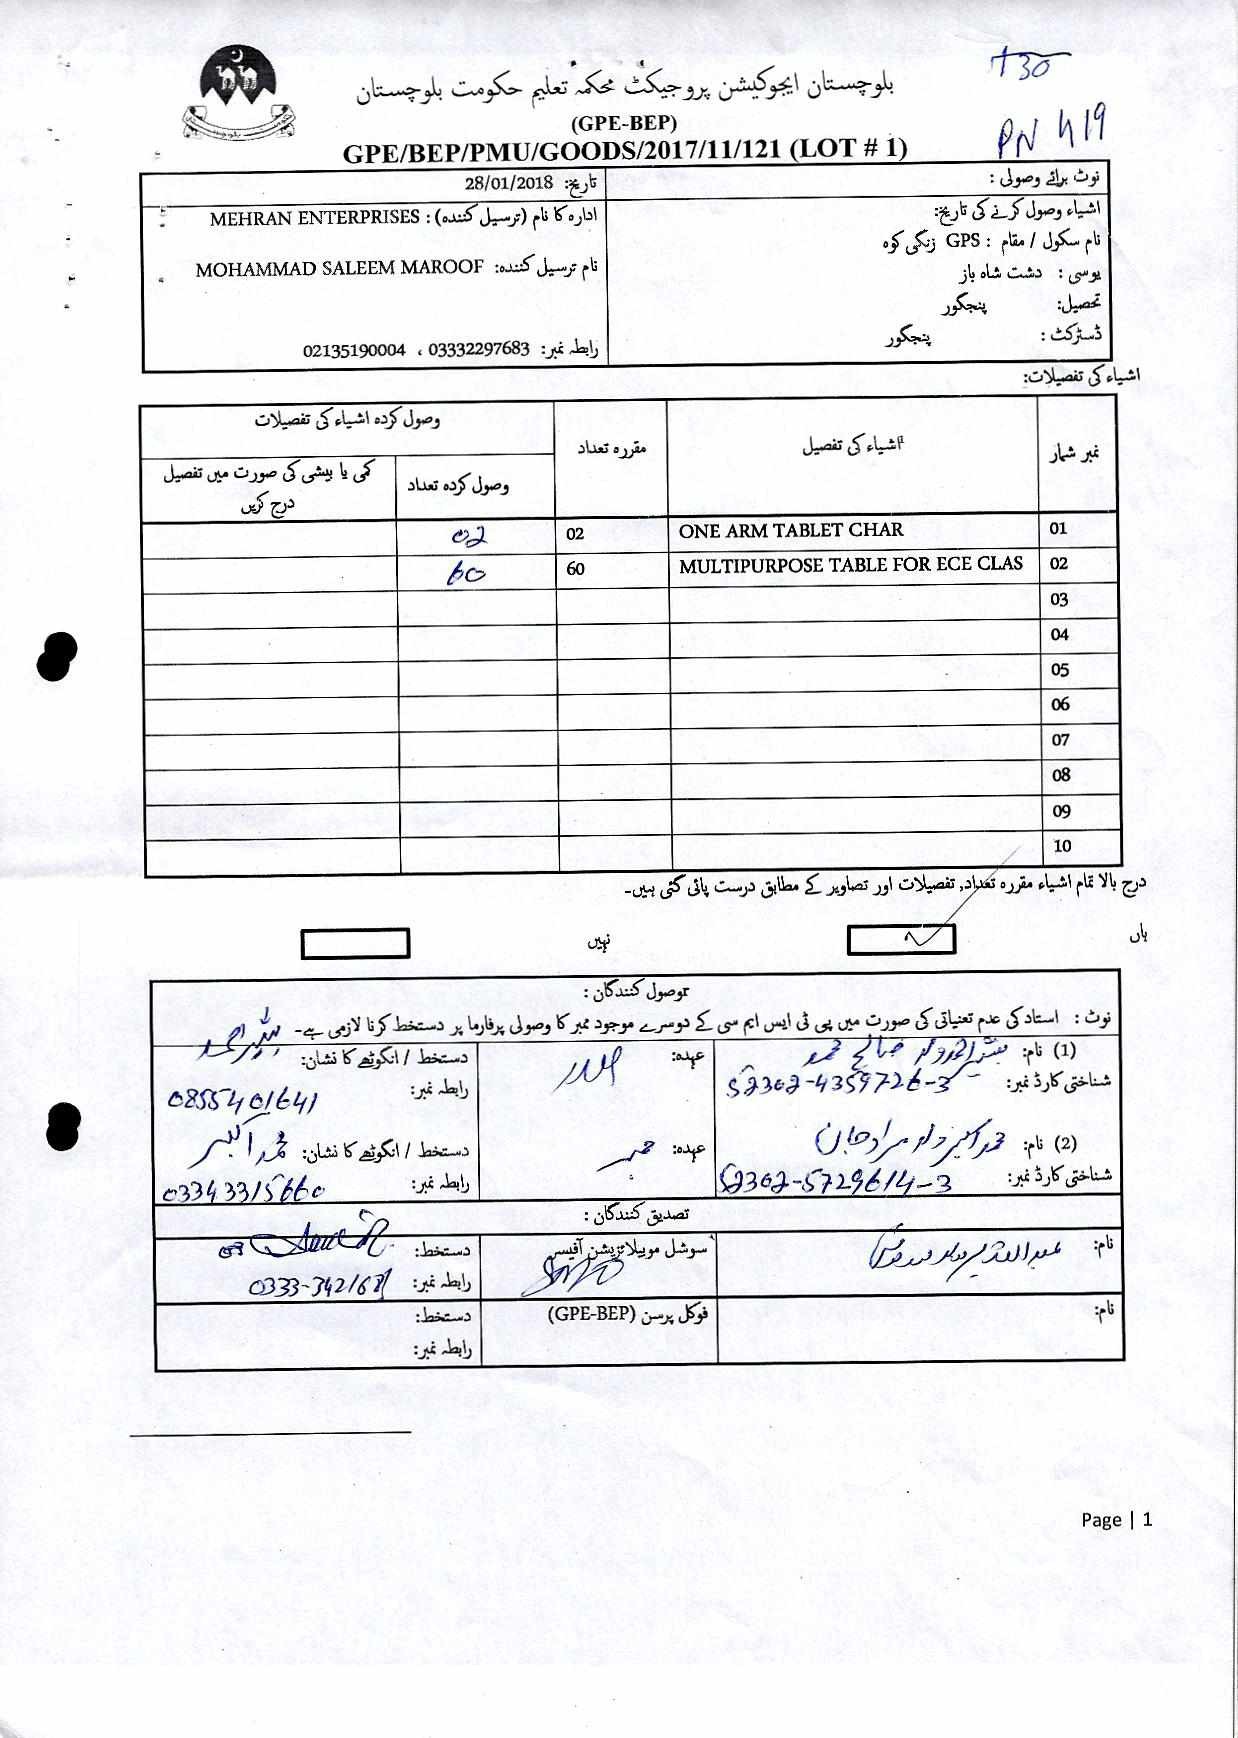 T30
بلوچستان ایجوکیشن پروجیکٹ محکمہ تعلیم حکومت بلوچستان
(GPE-BEP)
PN 419
GPE/BEP/PMU/GOODS/2017/11/121 (LOT # 1)
نوٹ برائے وصولی :
تاریخ: 28/01/2018
اشیاء وصول کرنے کی تاریخ:
نام سکول / مقام : GPS زنگی کوہ
یوسی : دشت شاہ باز
تحصیل: پنجگور
ڈسٹرکٹ : پنجگور
ادارہ کا نام (ترسیل کنندہ) : MEHRAN ENTERPRISES
نام ترسیل کنندہ: MOHAMMAD SALEEM MAROOF
رابطہ نمبر: 03332297683 ، 02135190004
اشیاء کی تفصیلات:
نمبر شمار اشیاء کی تفصیل مقررہ تعداد وصول کردہ اشیاء کی تفصیلات
وصول کردہ تعداد کمی یا بیشی کی صورت میں تفصیل درج کریں
01 ONE ARM TABLET CHAR 02 02
02 MULTIPURPOSE TABLE FOR ECE CLAS 60 60
03
04
05
06
07
08
09
10
درج بالا تمام اشیاء مقررہ تعداد, تفصیلات اور تصاویر کے مطابق درست پائی گئی ہیں۔
ہاں نہیں
وصول کنندگان :
نوٹ : استاد کی عدم تعیناتی کی صورت میں پی ٹی ایس ایم سی کے دوسرے موجود ممبر کا وصولی پرفارما پر دستخط کرنا لازمی ہے۔
(1) نام: صالح محمد عہدہ: دستخط / انگوٹھے کا نشان:
شناختی کارڈ نمبر: 52302-4359726-3 رابطہ نمبر: 0855401641
(2) نام: محمد اکبر ولد مراد جان عہدہ: ممبر دستخط / انگوٹھے کا نشان: محمد اکبر
شناختی کارڈ نمبر: 52302-5729614-3 رابطہ نمبر: 03343315660
تصدیق کنندگان :
نام: سوشل موبیلائزیشن آفیسر دستخط:
رابطہ نمبر: 0333-342168
نام: فوکل پرسن (GPE-BEP) دستخط:
رابطہ نمبر:
Page | 1